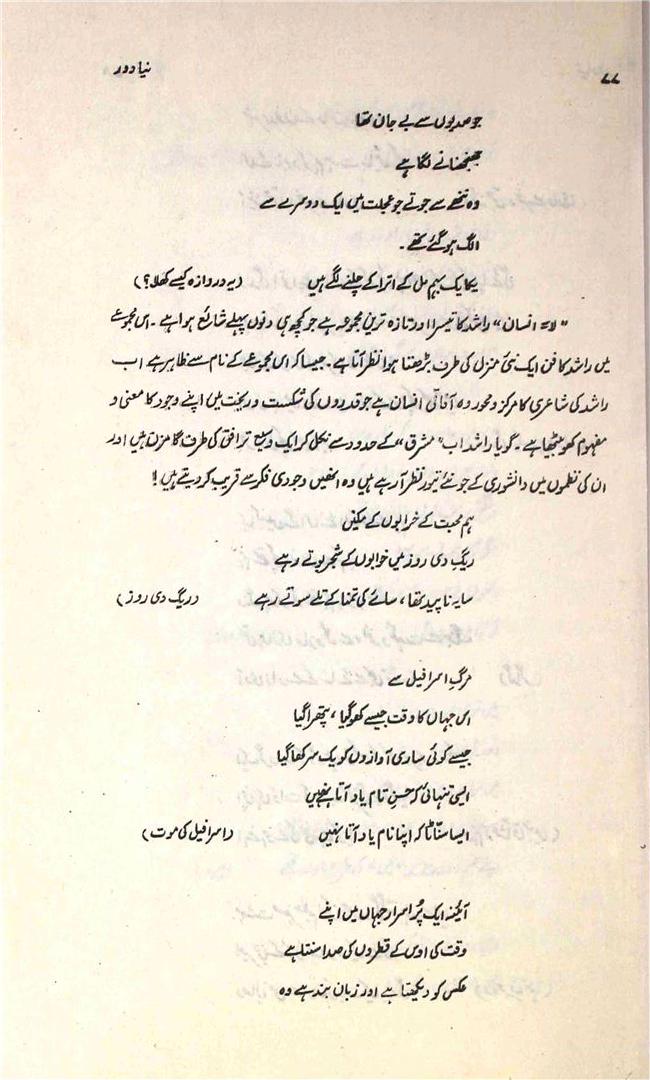 ۷۷
نیا دور
جو صدیوں سے بے جان تھا
جھنجھنانے لگا ہے
وہ ننھے سے جوتے جو عجلت میں ایک دوسرے سے
الگ ہو گئے تھے۔
یکایک بہم مل کے اترا کے چلنے لگے ہیں (یہ دروازہ کیسے کھلا؟)
"لا = انسان" راشد کا تیسرا اور تازہ ترین مجموعہ ہے جو کچھ ہی دنوں پہلے شائع ہوا ہے۔ اس مجموعے
میں راشد کا فن ایک نئی منزل کی طرف بڑھتا ہوا نظر آتا ہے۔ جیسا کہ اس مجموعے کے نام سے ظاہر ہے اب
راشد کی شاعری کا مرکز و محور وہ آفاقی انسان ہے جو قدروں کی شکست و ریخت میں اپنے وجود کا معنی و
مفہوم کھو بیٹھا ہے۔ گویا راشد اب "مشرق" کے حدود سے نکل کر ایک وسیع تر افق کی طرف گامزن ہیں اور
ان کی نظموں میں دانشوری کے جو نئے تیور نظر آ رہے ہیں وہ انھیں وجودی فکر سے قریب کر دیتے ہیں!
ہم محبت کے خرابوں کے مکیں
ریگِ دی روز میں خوابوں کے شجر بوتے رہے
سایہ ناپید تھا، سائے کی تمنا کے تلے سوتے رہے (ریگ دی روز)
مرگِ اسرافیل سے
اس جہاں کا وقت جیسے کھو گیا، پتھرا گیا
جیسے کوئی ساری آوازوں کو یک سر کھا گیا
ایسی تنہائی کہ حسنِ تام یاد آتا نہیں
ایسا سنّاٹا کہ اپنا نام یاد آتا نہیں (اسرافیل کی موت)
آئینہ ایک پُر اسرار جہاں میں اپنے
وقت کی اوس کے قطروں کی صدا سنتا ہے
عکس کو دیکھتا ہے اور زبان بند ہے وہ